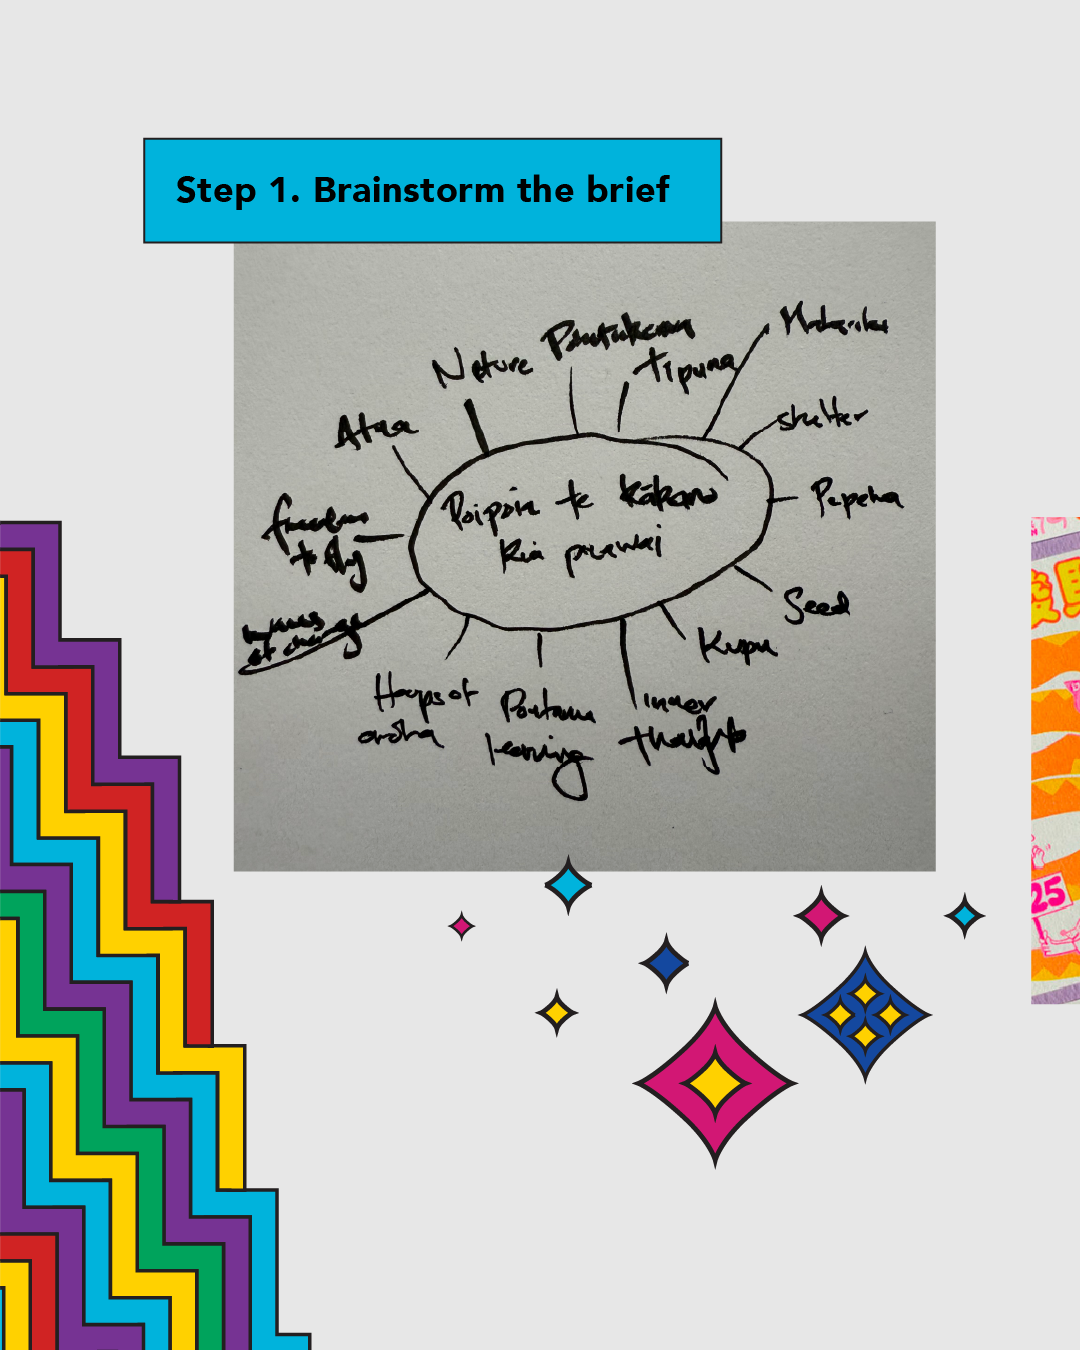 Step 1. Brainstorm the brief
Matariki
Nature
Tipuna
shelter
Poipoia te Kākano
Kia puawai
Pepeha
freedom
to fly
Seed
of change
Kupu
Heaps of
aroha
Poutama
learning
inner
thoughts
25